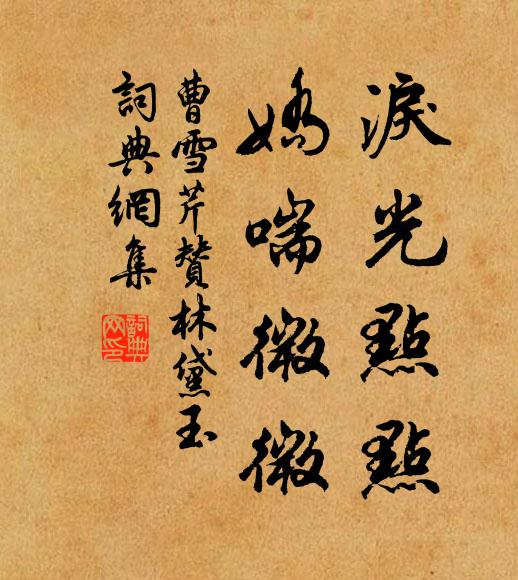 淚光點點
嬌喘微微
曹雪芹贊林黛玉
詞典網集
詞典
网印